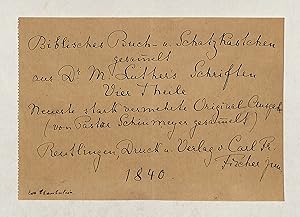 Biblisches Buch- u Schatzkästchen
gesam̄elt
aus Dr M. Luthers Schriften
Vier Theile
Neueste stark vermehrte Original Ausgabe
(von Pastor Scheinmeyer gesam̄elt)
Reutlingen, Druck u Verlag v. Carl Fr.
Fischer jun.
1840.